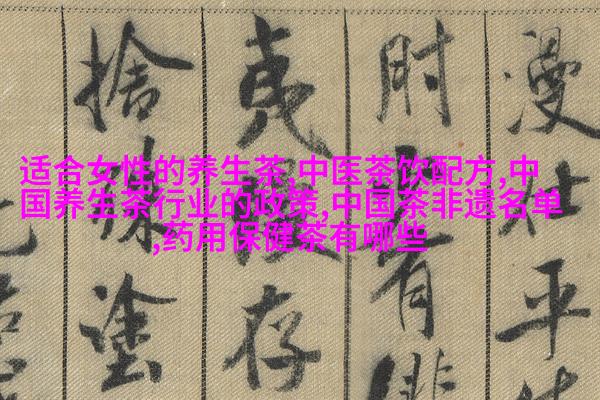 适合女性的养生茶,中医茶饮配方,中
国养生茶行业的政策,中国茶非遗名单
,药用保健茶有哪些
漫 平
有
夷 存
捨 殊 塗